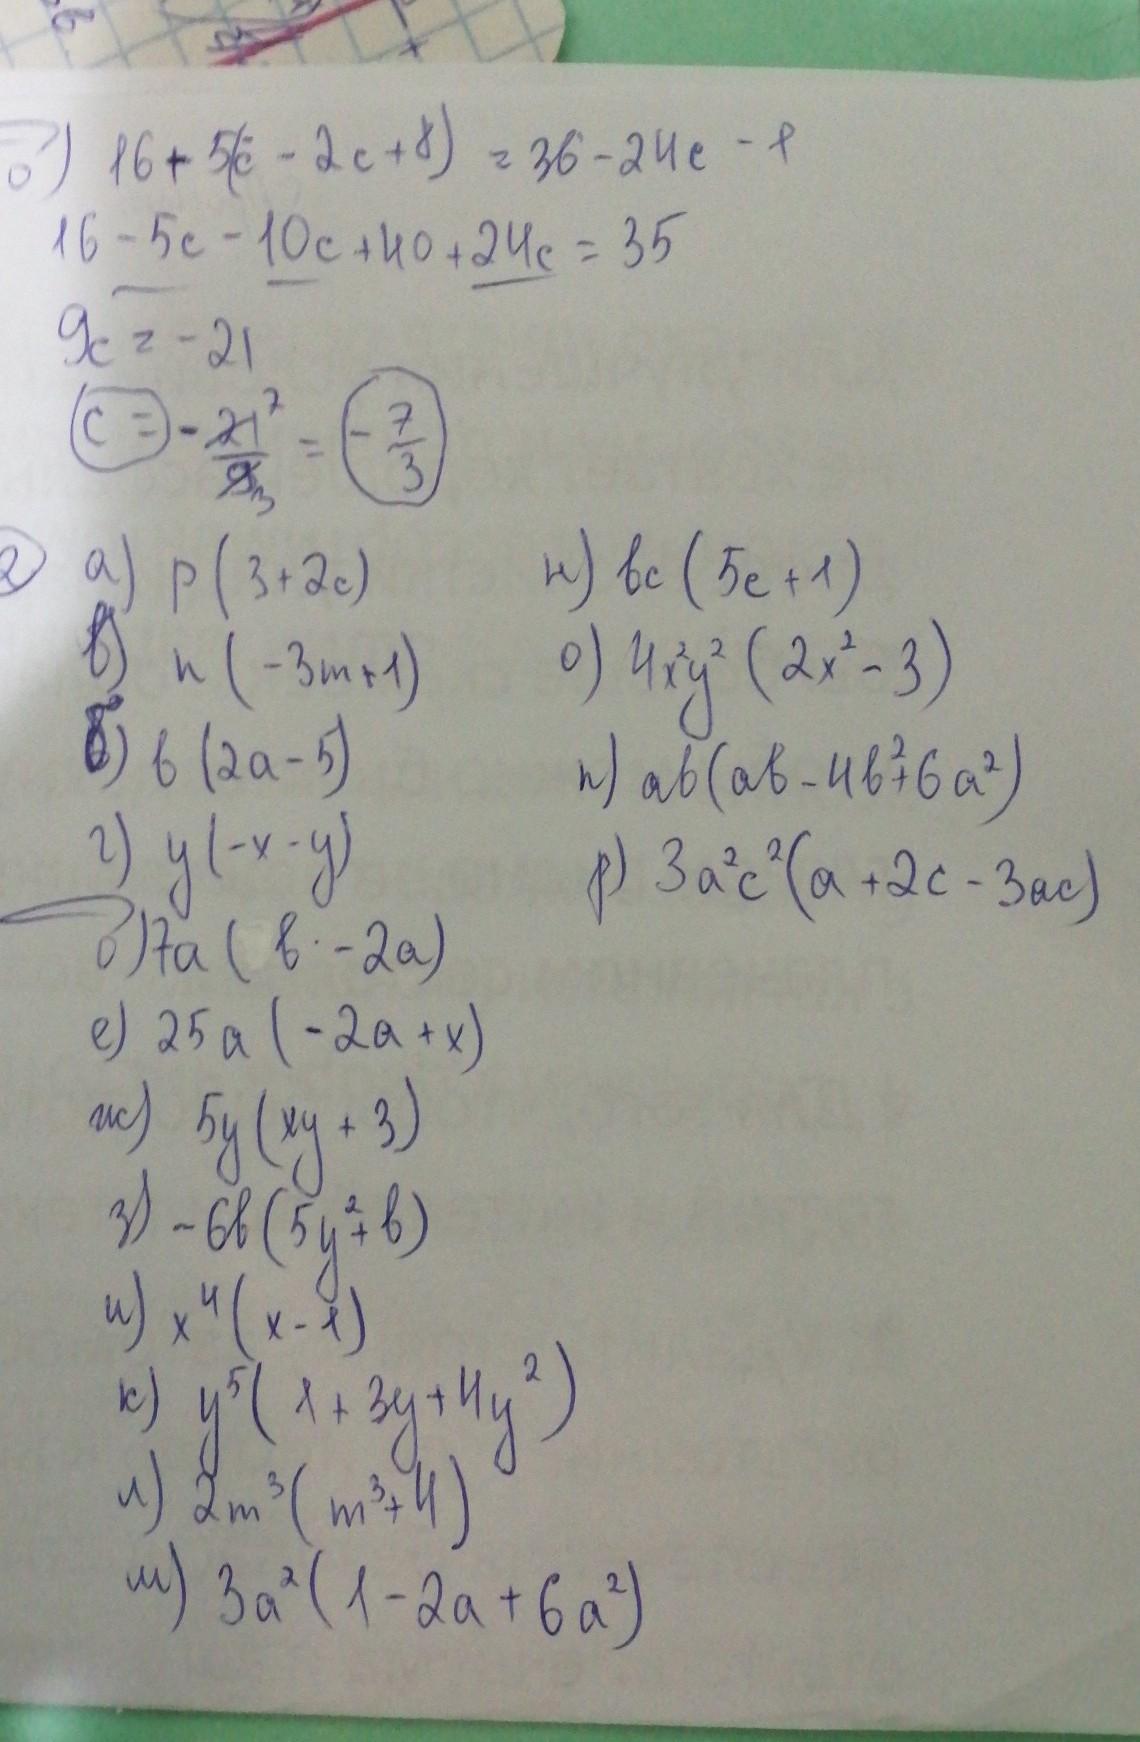 б) 16 + 5(c - 2c + 8) = 36 - 24c - 1
16 - 5c - 10c + 40 + 24c = 35
9c = -21
c = -21/9 = -7/3
2 а) p(3+2c)
в) n(-3m+1)
б) b(2a-5)
г) y(-x-y)
б) 7a(b·-2a)
е) 25a(-2a+x)
ж) 5y(xy+3)
з) -6b(5y²+b)
и) x⁴(x-1)
к) y⁵(1+3y+4y²)
л) 2m³(m³+4)
м) 3a²(1-2a+6a²)
н) bc(5c+1)
о) 4x²y²(2x²-3)
п) ab(ab-4b²+6a²)
р) 3a²c²(a+2c-3ac)